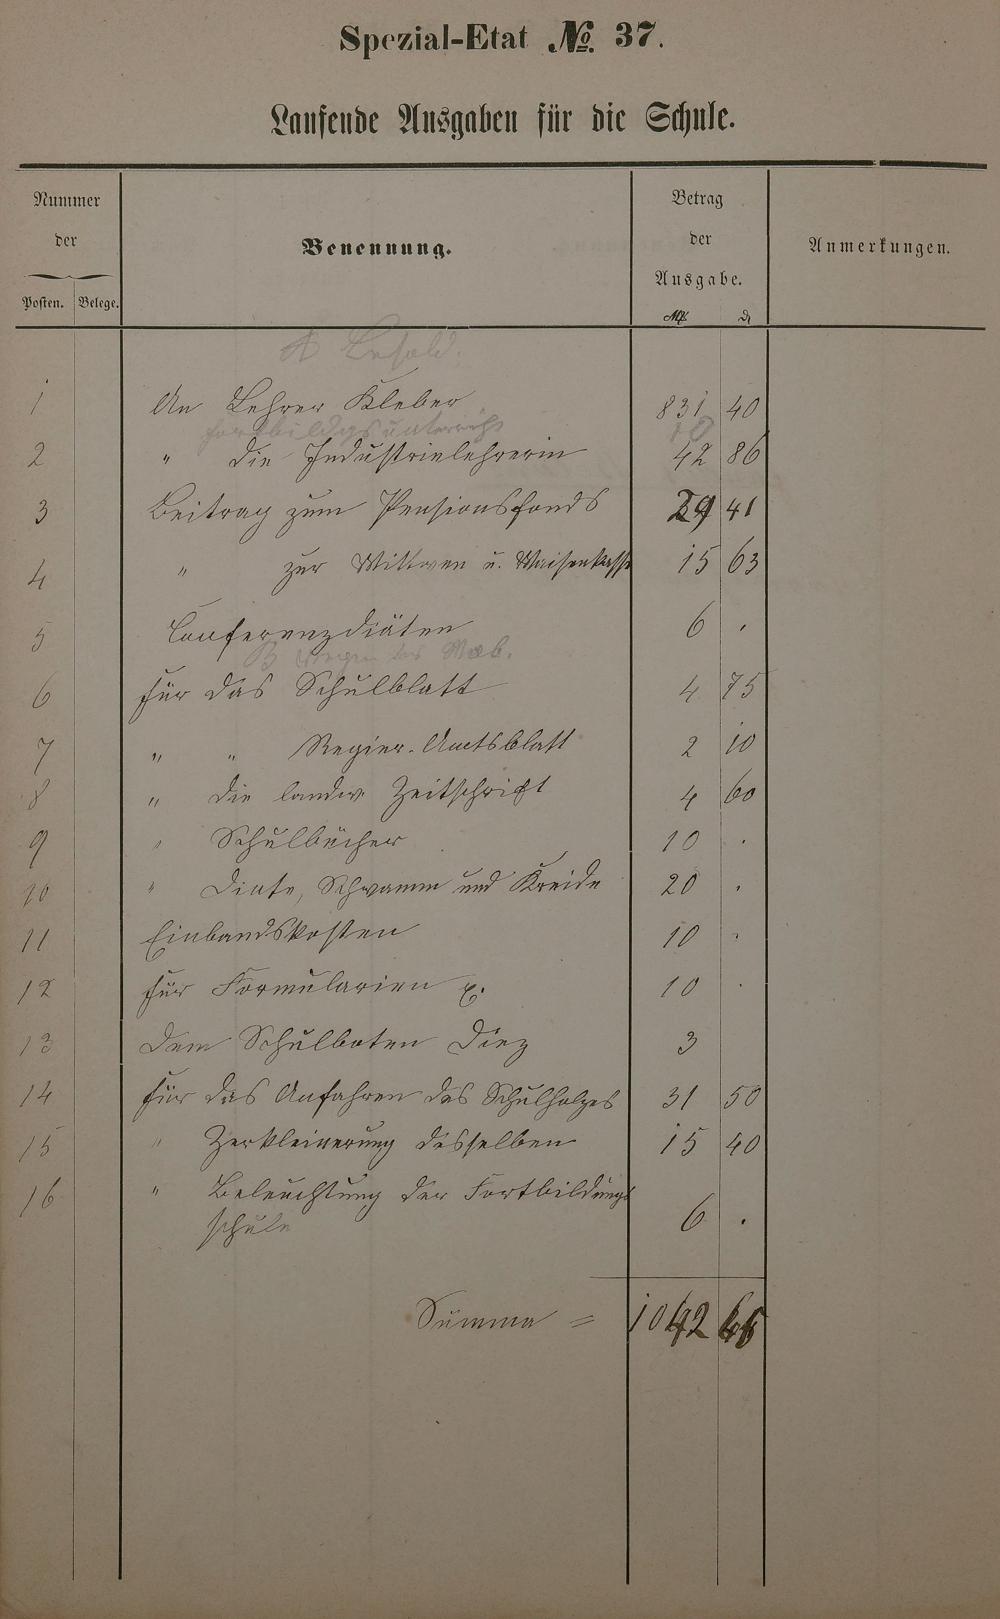 Spezial-Etat No. 37.
Laufende Ausgaben für die Schule.
Nummer der Posten. Belege.
Benennung.
Betrag der Ausgabe. M ₰
Anmerkungen.
A Besold.
1 An Lehrer Kleber 831 40
Fortbildgsunterricht 10
2 " die Industrielehrerin 42 86
3 Beitrag zum Pensionsfonds 29 41
4 " zur Wittwen u. Waisenkasse 15 63
5 Conferenzdiäten 6 .
B
6 für das Schulblatt 4 75
7 " " Regier. Amtsblatt 2 10
8 " die landw. Zeitschrift 4 60
9 " Schulbücher 10 .
10 " Dinte, Schwamm und Kreide 20 .
11 Einbandskosten 10 .
12 für Formularien 10 .
13 dem Schulboten Diez 3
14 für das Anfahren des Schulholzes 31 50
15 " Zerkleinerung desselben 15 40
16 " Beleuchtung der Fortbildungs
schule 6 .
Summa = 1042 65